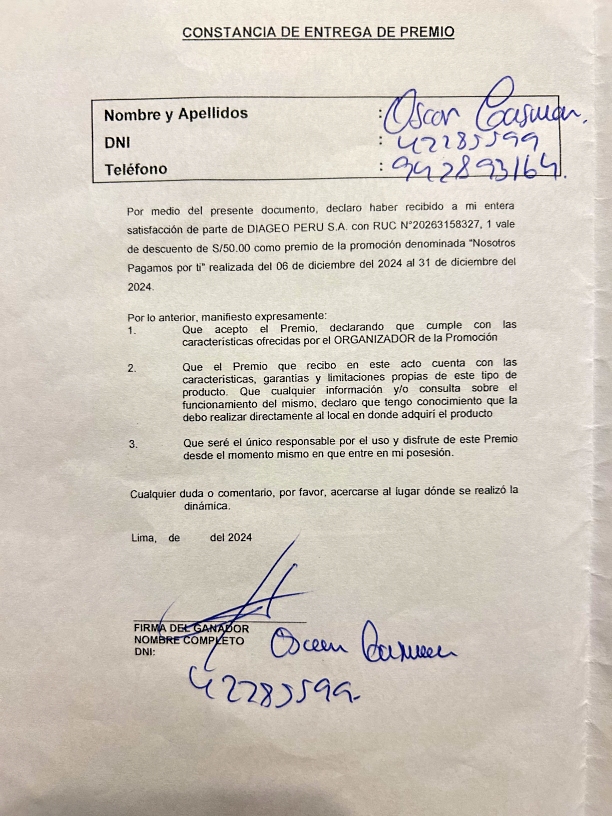 CONSTANCIA DE ENTREGA DE PREMIO
Nombre y Apellidos : Oscar
DNI : 42285599
Teléfono : 942893164.
Por medio del presente documento, declaro haber recibido a mi entera
satisfacción de parte de DIAGEO PERU S.A. con RUC N°20263158327, 1 vale
de descuento de S/50.00 como premio de la promoción denominada "Nosotros
Pagamos por ti" realizada del 06 de diciembre del 2024 al 31 de diciembre del
2024.
Por lo anterior, manifiesto expresamente:
1. Que acepto el Premio, declarando que cumple con las
características ofrecidas por el ORGANIZADOR de la Promoción
2. Que el Premio que recibo en este acto cuenta con las
características, garantías y limitaciones propias de este tipo de
producto. Que cualquier información y/o consulta sobre el
funcionamiento del mismo, declaro que tengo conocimiento que la
debo realizar directamente al local en donde adquirí el producto
3. Que seré el único responsable por el uso y disfrute de este Premio
desde el momento mismo en que entre en mi posesión.
Cualquier duda o comentario, por favor, acercarse al lugar dónde se realizó la
dinámica.
Lima, de del 2024
FIRMA DEL GANADOR
NOMBRE COMPLETO Oscar
DNI:
42285599.